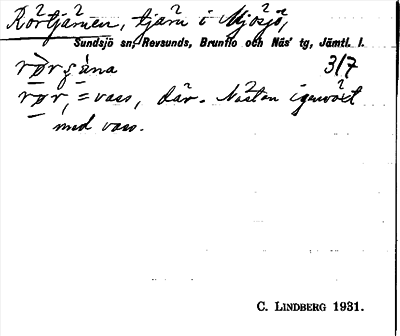 Rörtjärnen, tjärn i Mjösjö,
Sundsjö sn, Revsunds, Brunflo och Näs' tg, Jämtl. l.
3/7
rør, = vass, där. Nästan igenväxt
med vass.
C. LINDBERG 1931.